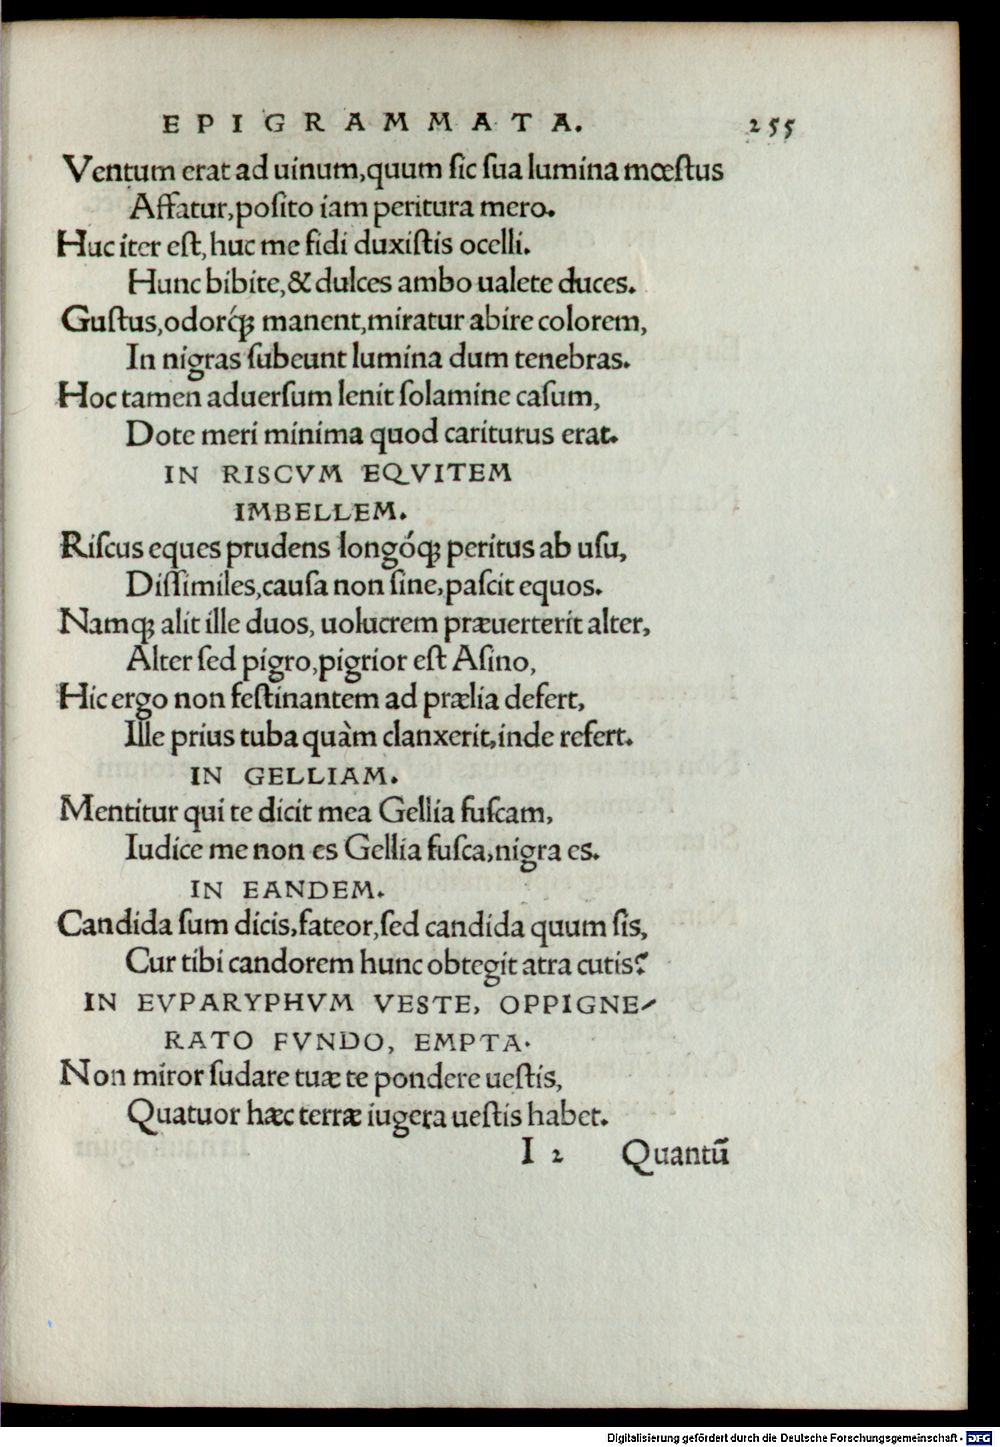 EPIGRAMMATA. 255
Ventum erat ad uinum,quum sic sua lumina mœstus
Affatur,posito iam peritura mero.
Huc iter est,huc me fidi duxistis ocelli.
Hunc bibite,&dulces ambo ualete duces.
Gustus,odorq́ꝫ manent,miratur abire colorem,
In nigras subeunt lumina dum tenebras.
Hoc tamen aduersum lenit solamine casum,
Dote meri minima quod cariturus erat.
IN RISCVM EQVITEM
IMBELLEM.
Riscus eques prudens longóqꝫ peritus ab usu,
Dissimiles,causa non sine,pascit equos.
Namqꝫ alit ille duos, uolucrem præuerterit alter,
Alter sed pigro,pigrior est Asino,
Hic ergo non festinantem ad prælia defert,
Ille prius tuba quàm clanxerit,inde refert.
IN GELLIAM.
Mentitur qui te dicit mea Gellia fuscam,
Iudice me non es Gellia fusca,nigra es.
IN EANDEM.
Candida sum dicis,fateor,sed candida quum sis,
Cur tibi candorem hunc obtegit atra cutis?
IN EVPARYPHVM VESTE, OPPIGNE-
RATO FVNDO, EMPTA.
Non miror sudare tuæ te pondere uestis,
Quatuor hæc terræ iugera uestis habet.
I 2 Quantū
Digitalisierung gefördert durch die Deutsche Forschungsgemeinschaft - DFG